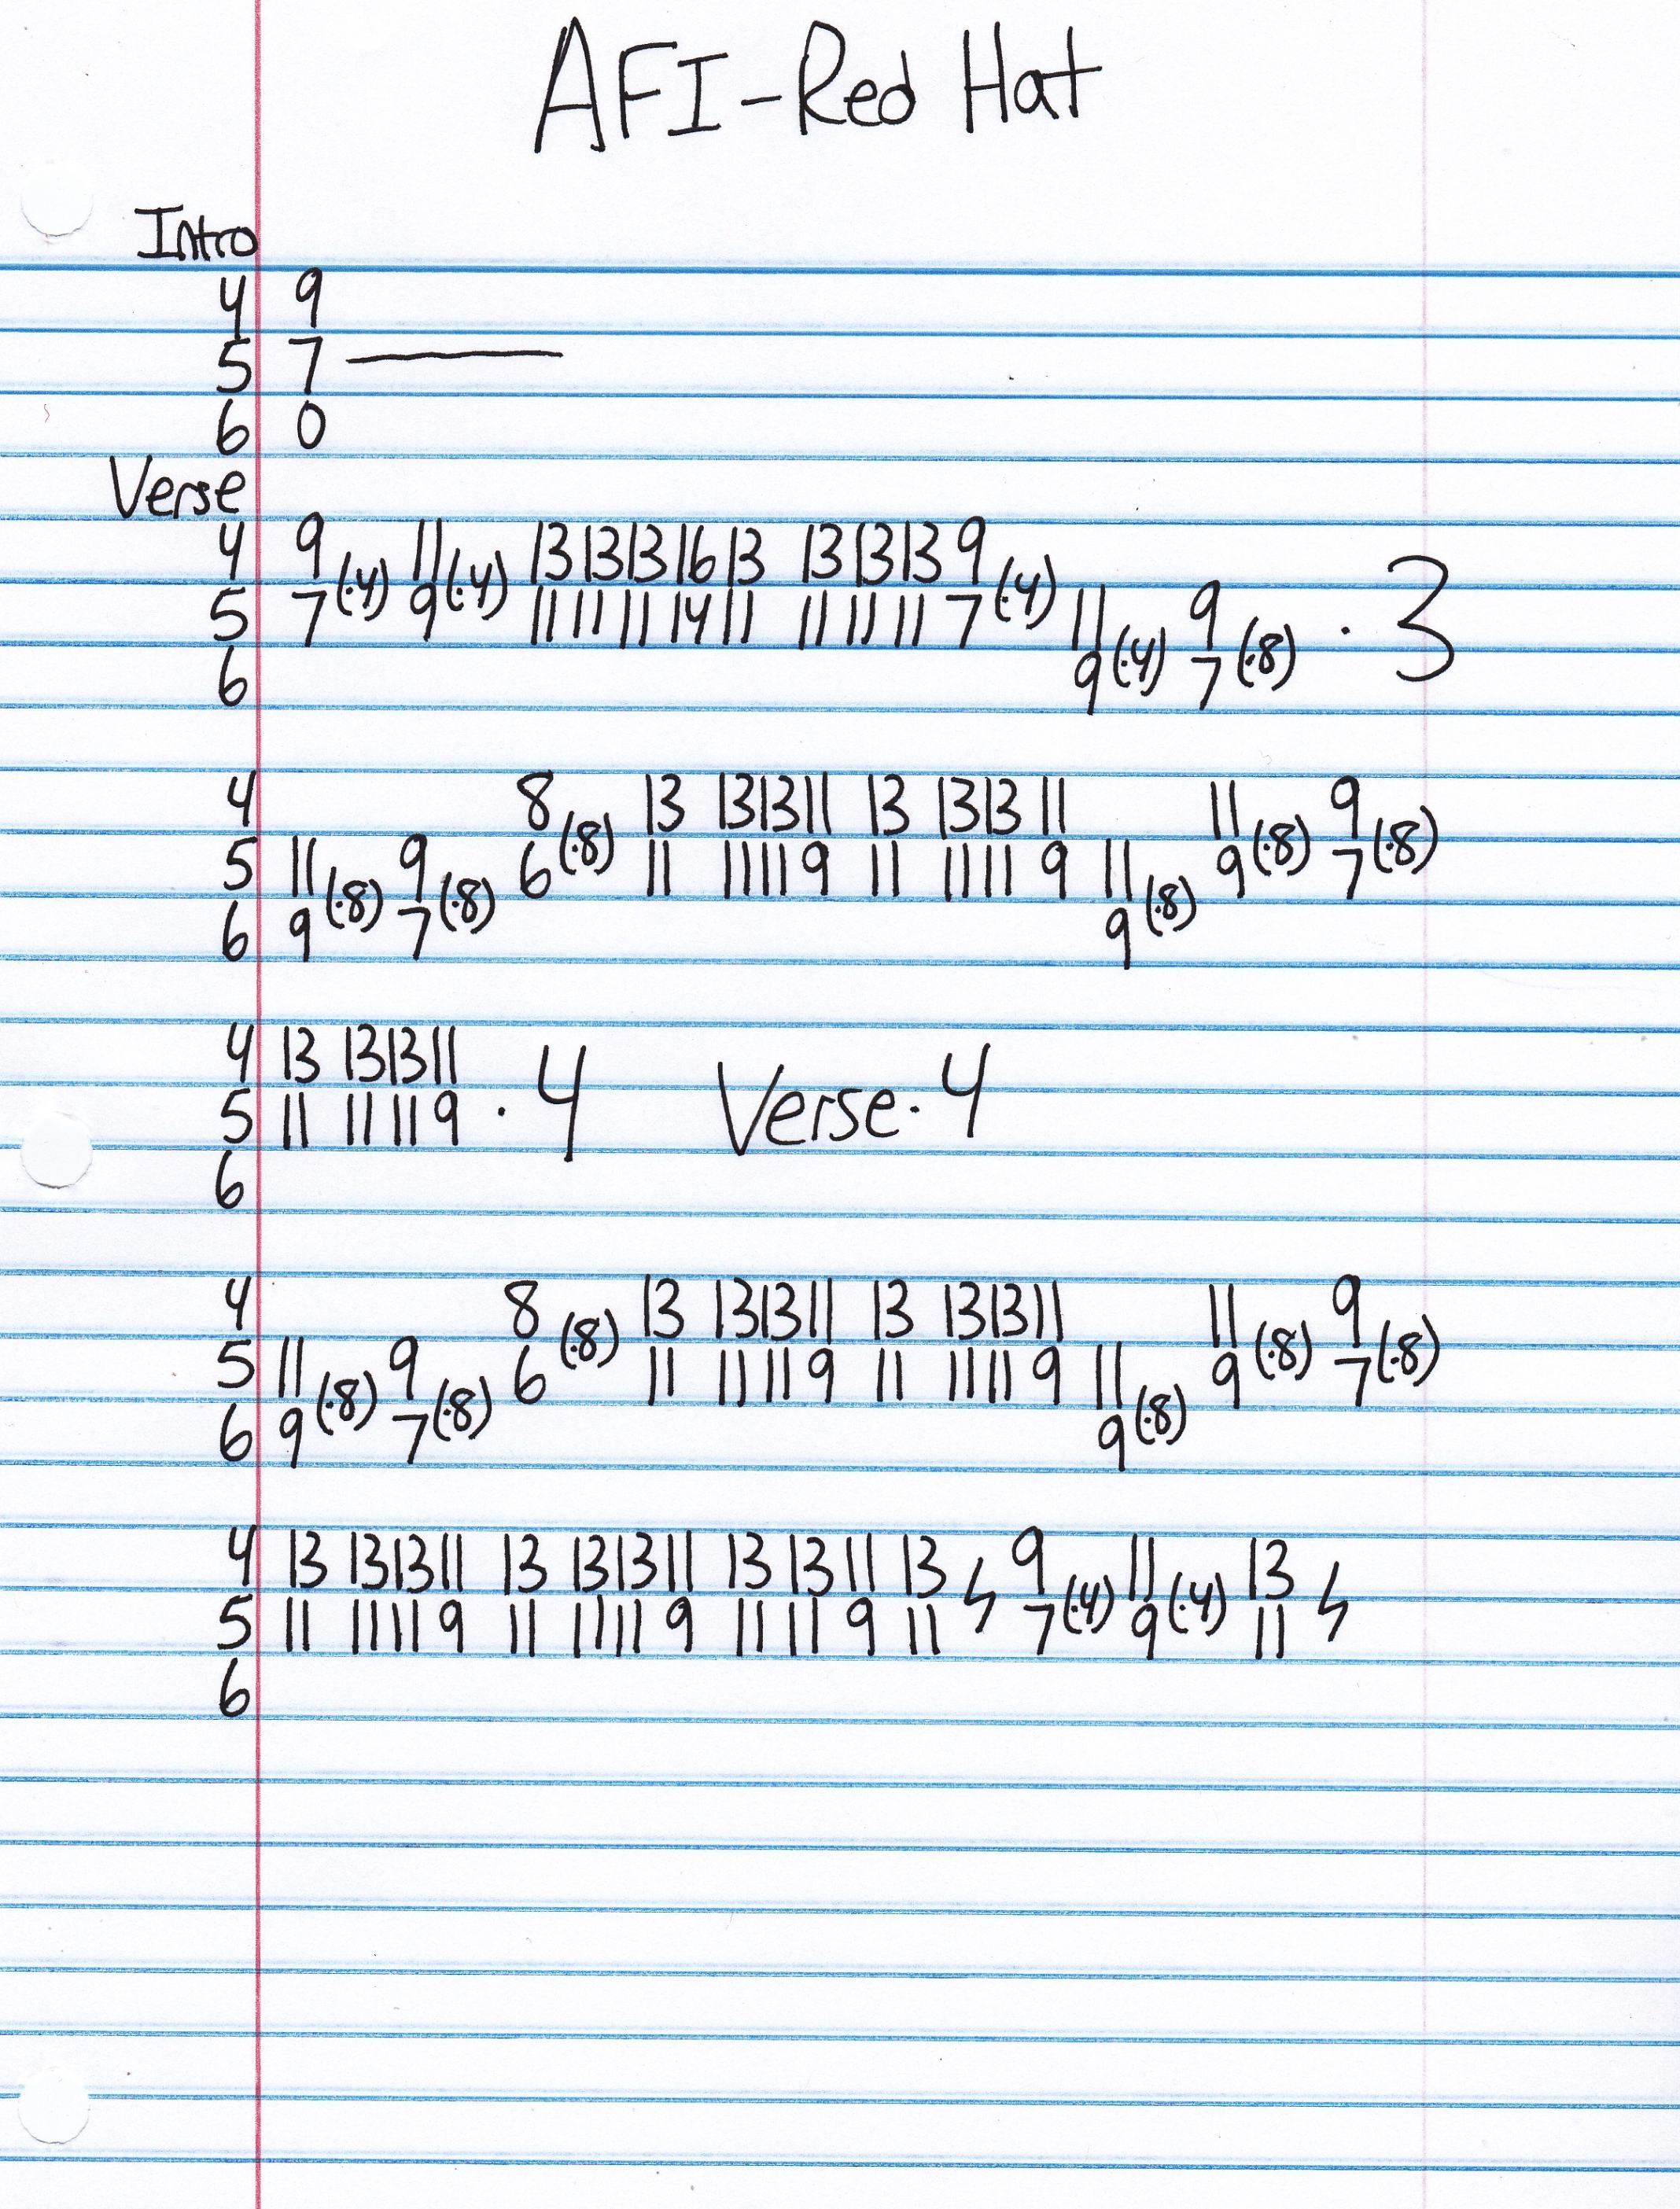 AFI-Red Hat
Intro
4 9
5 7 ———
6 0
Verse
4 9 11 13 13 13 16 13 13 13 13 9
5 7 (·4) 9 (·4) 11 11 11 14 11 11 11 11 7 (·4) 11 9 · 3
6 9 (·4) 7 (·8)
4 8 13 13 13 11 13 13 13 11 11 9
5 11 9 6 (·8) 11 11 11 9 11 11 11 9 11 9 (·8) 7 (·8)
6 9 (·8) 7 (·8) 9 (·8)
4 13 13 13 11
5 11 11 11 9 · 4 Verse · 4
6
4 8 13 13 13 11 13 13 13 11 11 9
5 11 9 6 (·8) 11 11 11 9 11 11 11 9 11 9 (·8) 7 (·8)
6 9 (·8) 7 (·8) 9 (·8)
4 13 13 13 11 13 13 13 11 13 13 11 13 9 11 13
5 11 11 11 9 11 11 11 9 11 11 9 11 7 (·4) 9 (·4) 11
6